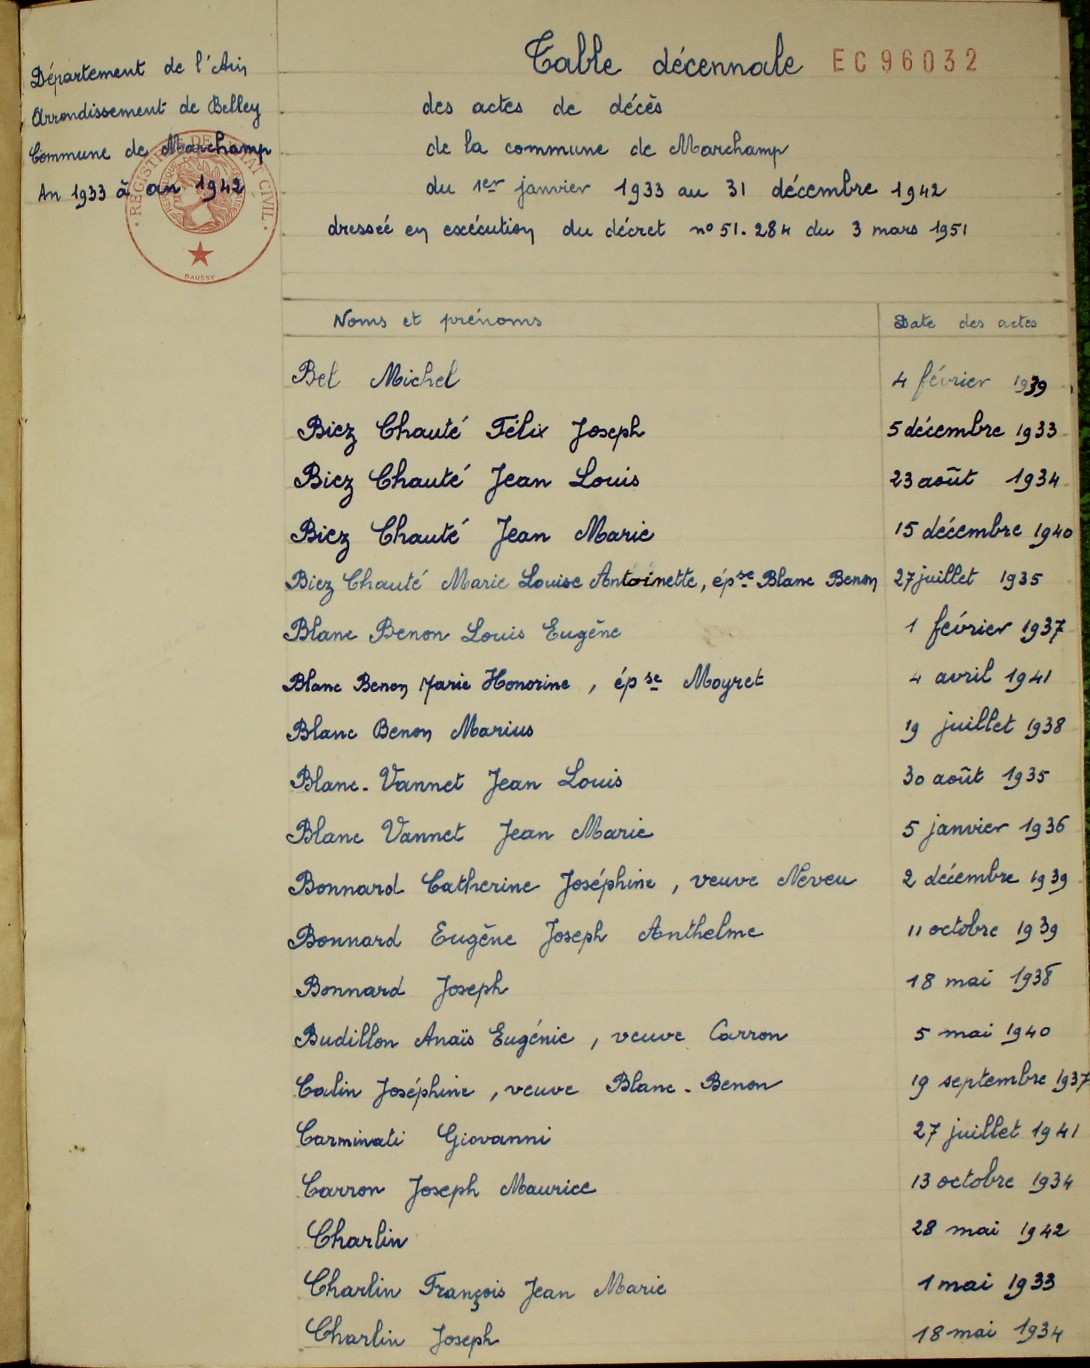 Département de l'Ain
Arrondissement de Belley
Commune de Marchamp
An 1933 à an 1942
REGISTRE DE L'ETAT CIVIL
Table décennale EC96032
des actes de décès
de la commune de Marchamp
du 1er janvier 1933 au 31 décembre 1942
dressée en exécution du décret n° 51.284 du 3 mars 1951
Noms et prénoms Date des actes
Bel Michel 4 février 1939
Biez Chauté Félix Joseph 5 décembre 1933
Biez Chauté Jean Louis 23 août 1934
Biez Chauté Jean Marie 15 décembre 1940
Biez Chauté Marie Louise Antoinette, épse Blanc Benon 27 juillet 1935
Blanc Benon Louis Eugène 1 février 1937
Blanc Benon Marie Honorine, épse Moyret 4 avril 1941
Blanc Benon Marius 19 juillet 1938
Blanc-Vannet Jean Louis 30 août 1935
Blanc Vannet Jean Marie 5 janvier 1936
Bonnard Catherine Joséphine, veuve Neveu 2 décembre 1939
Bonnard Eugène Joseph Anthelme 11 octobre 1939
Bonnard Joseph 18 mai 1938
Budillon Anaïs Eugénie, veuve Carron 5 mai 1940
Calin Joséphine, veuve Blanc-Benon 19 septembre 1937
Carminati Giovanni 27 juillet 1941
Carron Joseph Maurice 13 octobre 1934
Charlin 28 mai 1942
Charlin François Jean Marie 1 mai 1933
Charlin Joseph 18 mai 1934